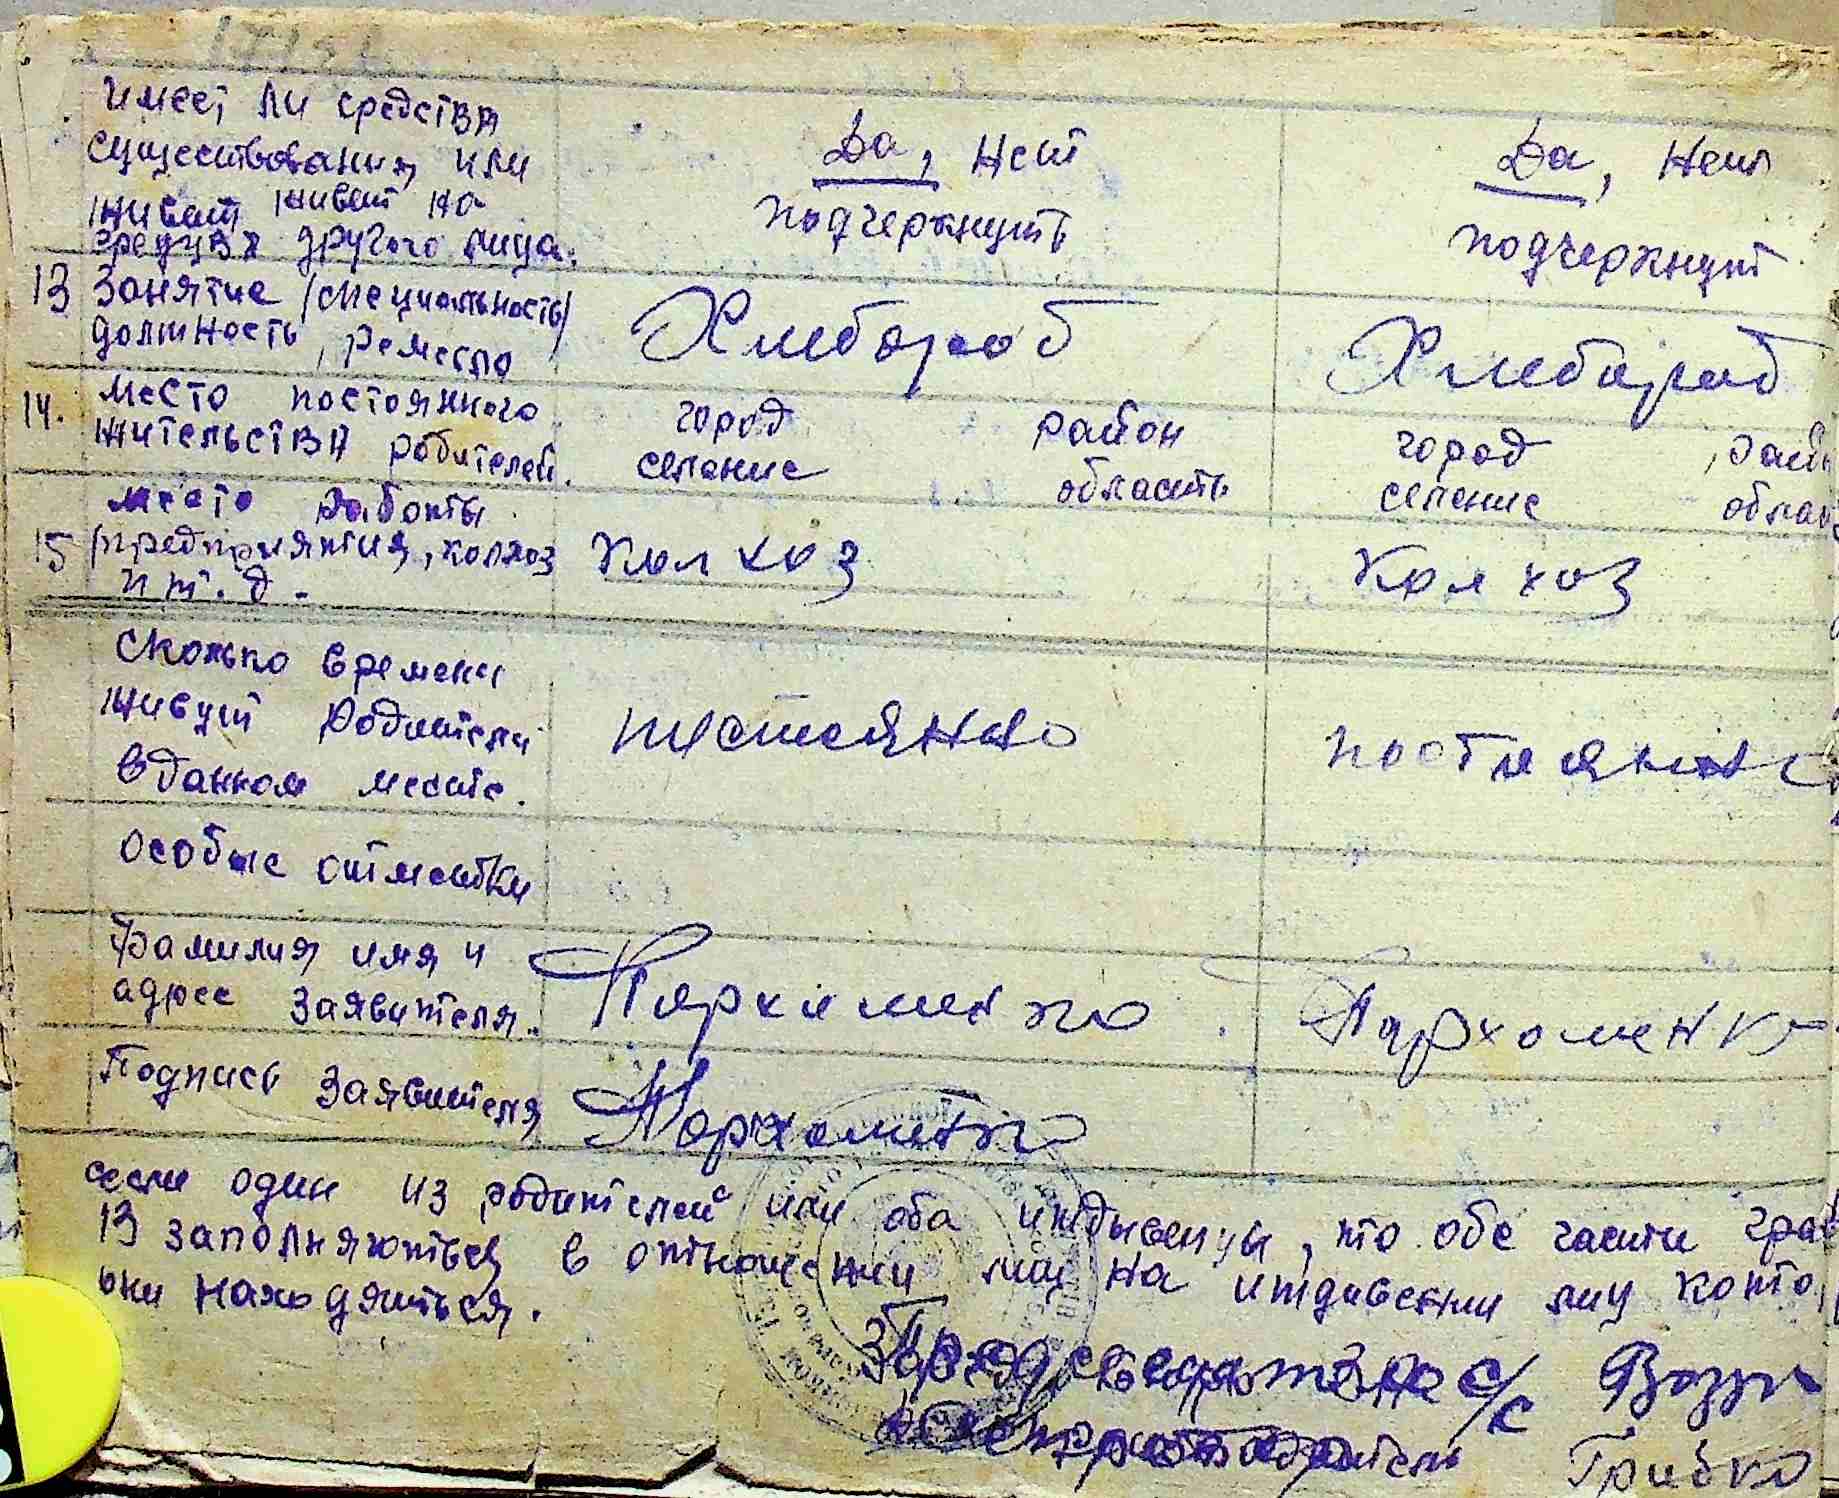 имеет ли средства
существования, или
живет живет на
средства другого лица.
Да, нет
подчеркнуть
Да, нет
подчеркнут
13 Занятие /специальность/
должность, ремесло
Хлебороб
Хлебороб
14. место постоянного
жительства родителей.
город район
селение область
город
селение
место работы
15 /предприятия, колхоз
и т. д.
Колхоз
Колхоз
сколько времени
живут родители
в данном месте.
постояно
особые отметки
Фамилия имя и
адрес заявителя.
Пархоменко
Пархоменко
Подпись заявителя
Пархоменко
если один из родителей или оба иждивенцы, то обе части
13 заполняються в отношении лиц на иждивении лиц
они находяться.
с/с
Грибко